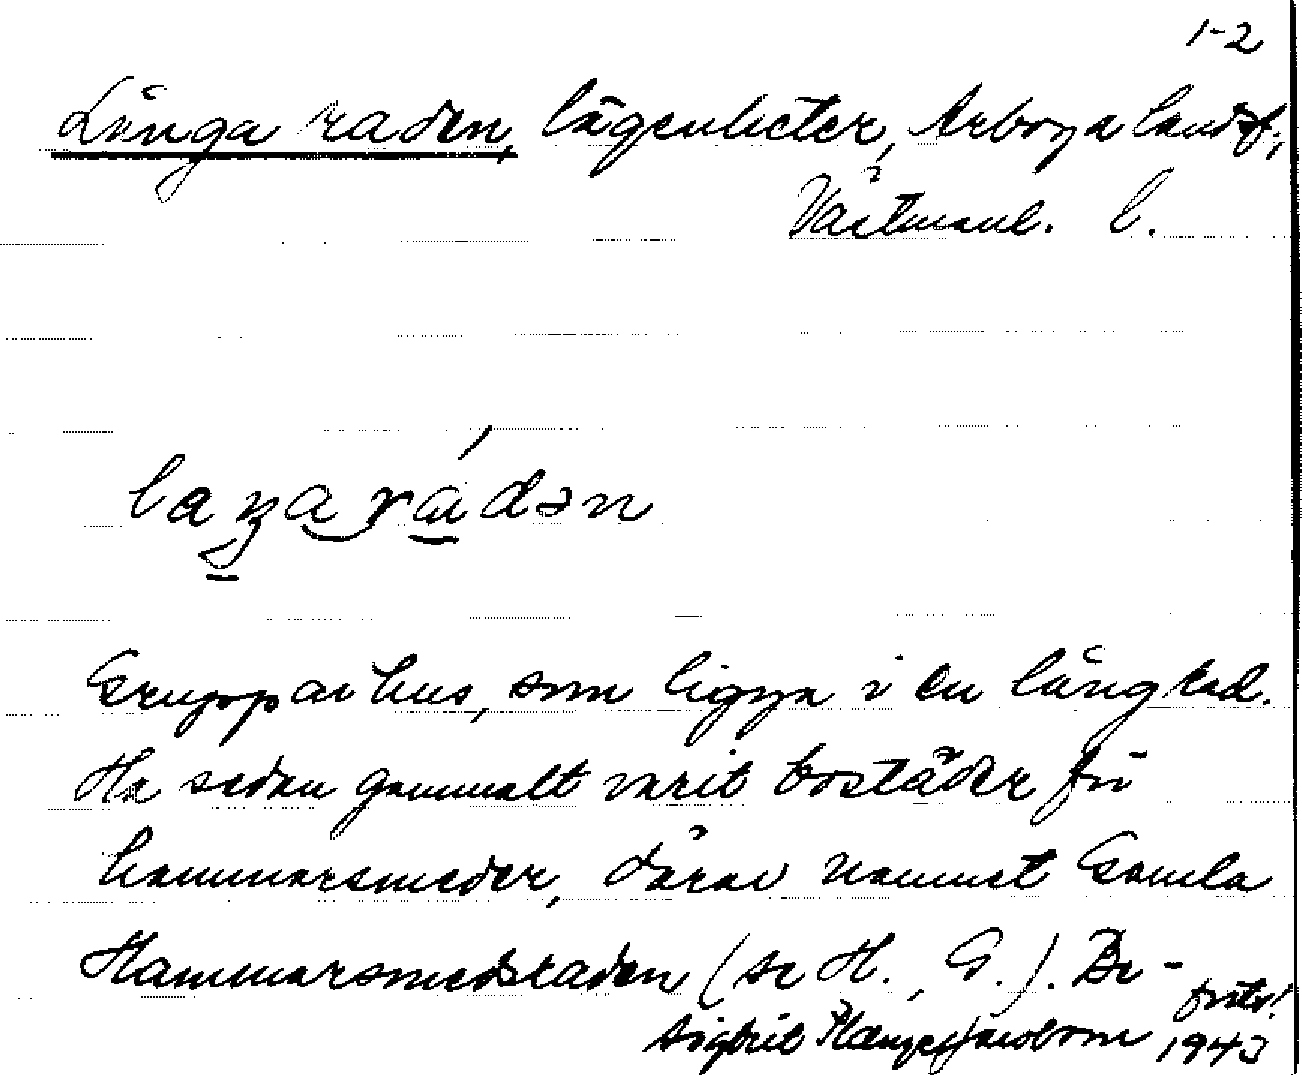 1-2
Långa raden, lägenheter, Arboga landsf.,
Västmanl. l.
Grupp av hus, som ligga i en lång rad.
Ha sedan gammalt varit bostäder för
hammarsmeder, därav namnet Gamla
Hammarsmedsraden (se H., G.). De-
forts!
Sigbrit Plænge Jacobson 1943